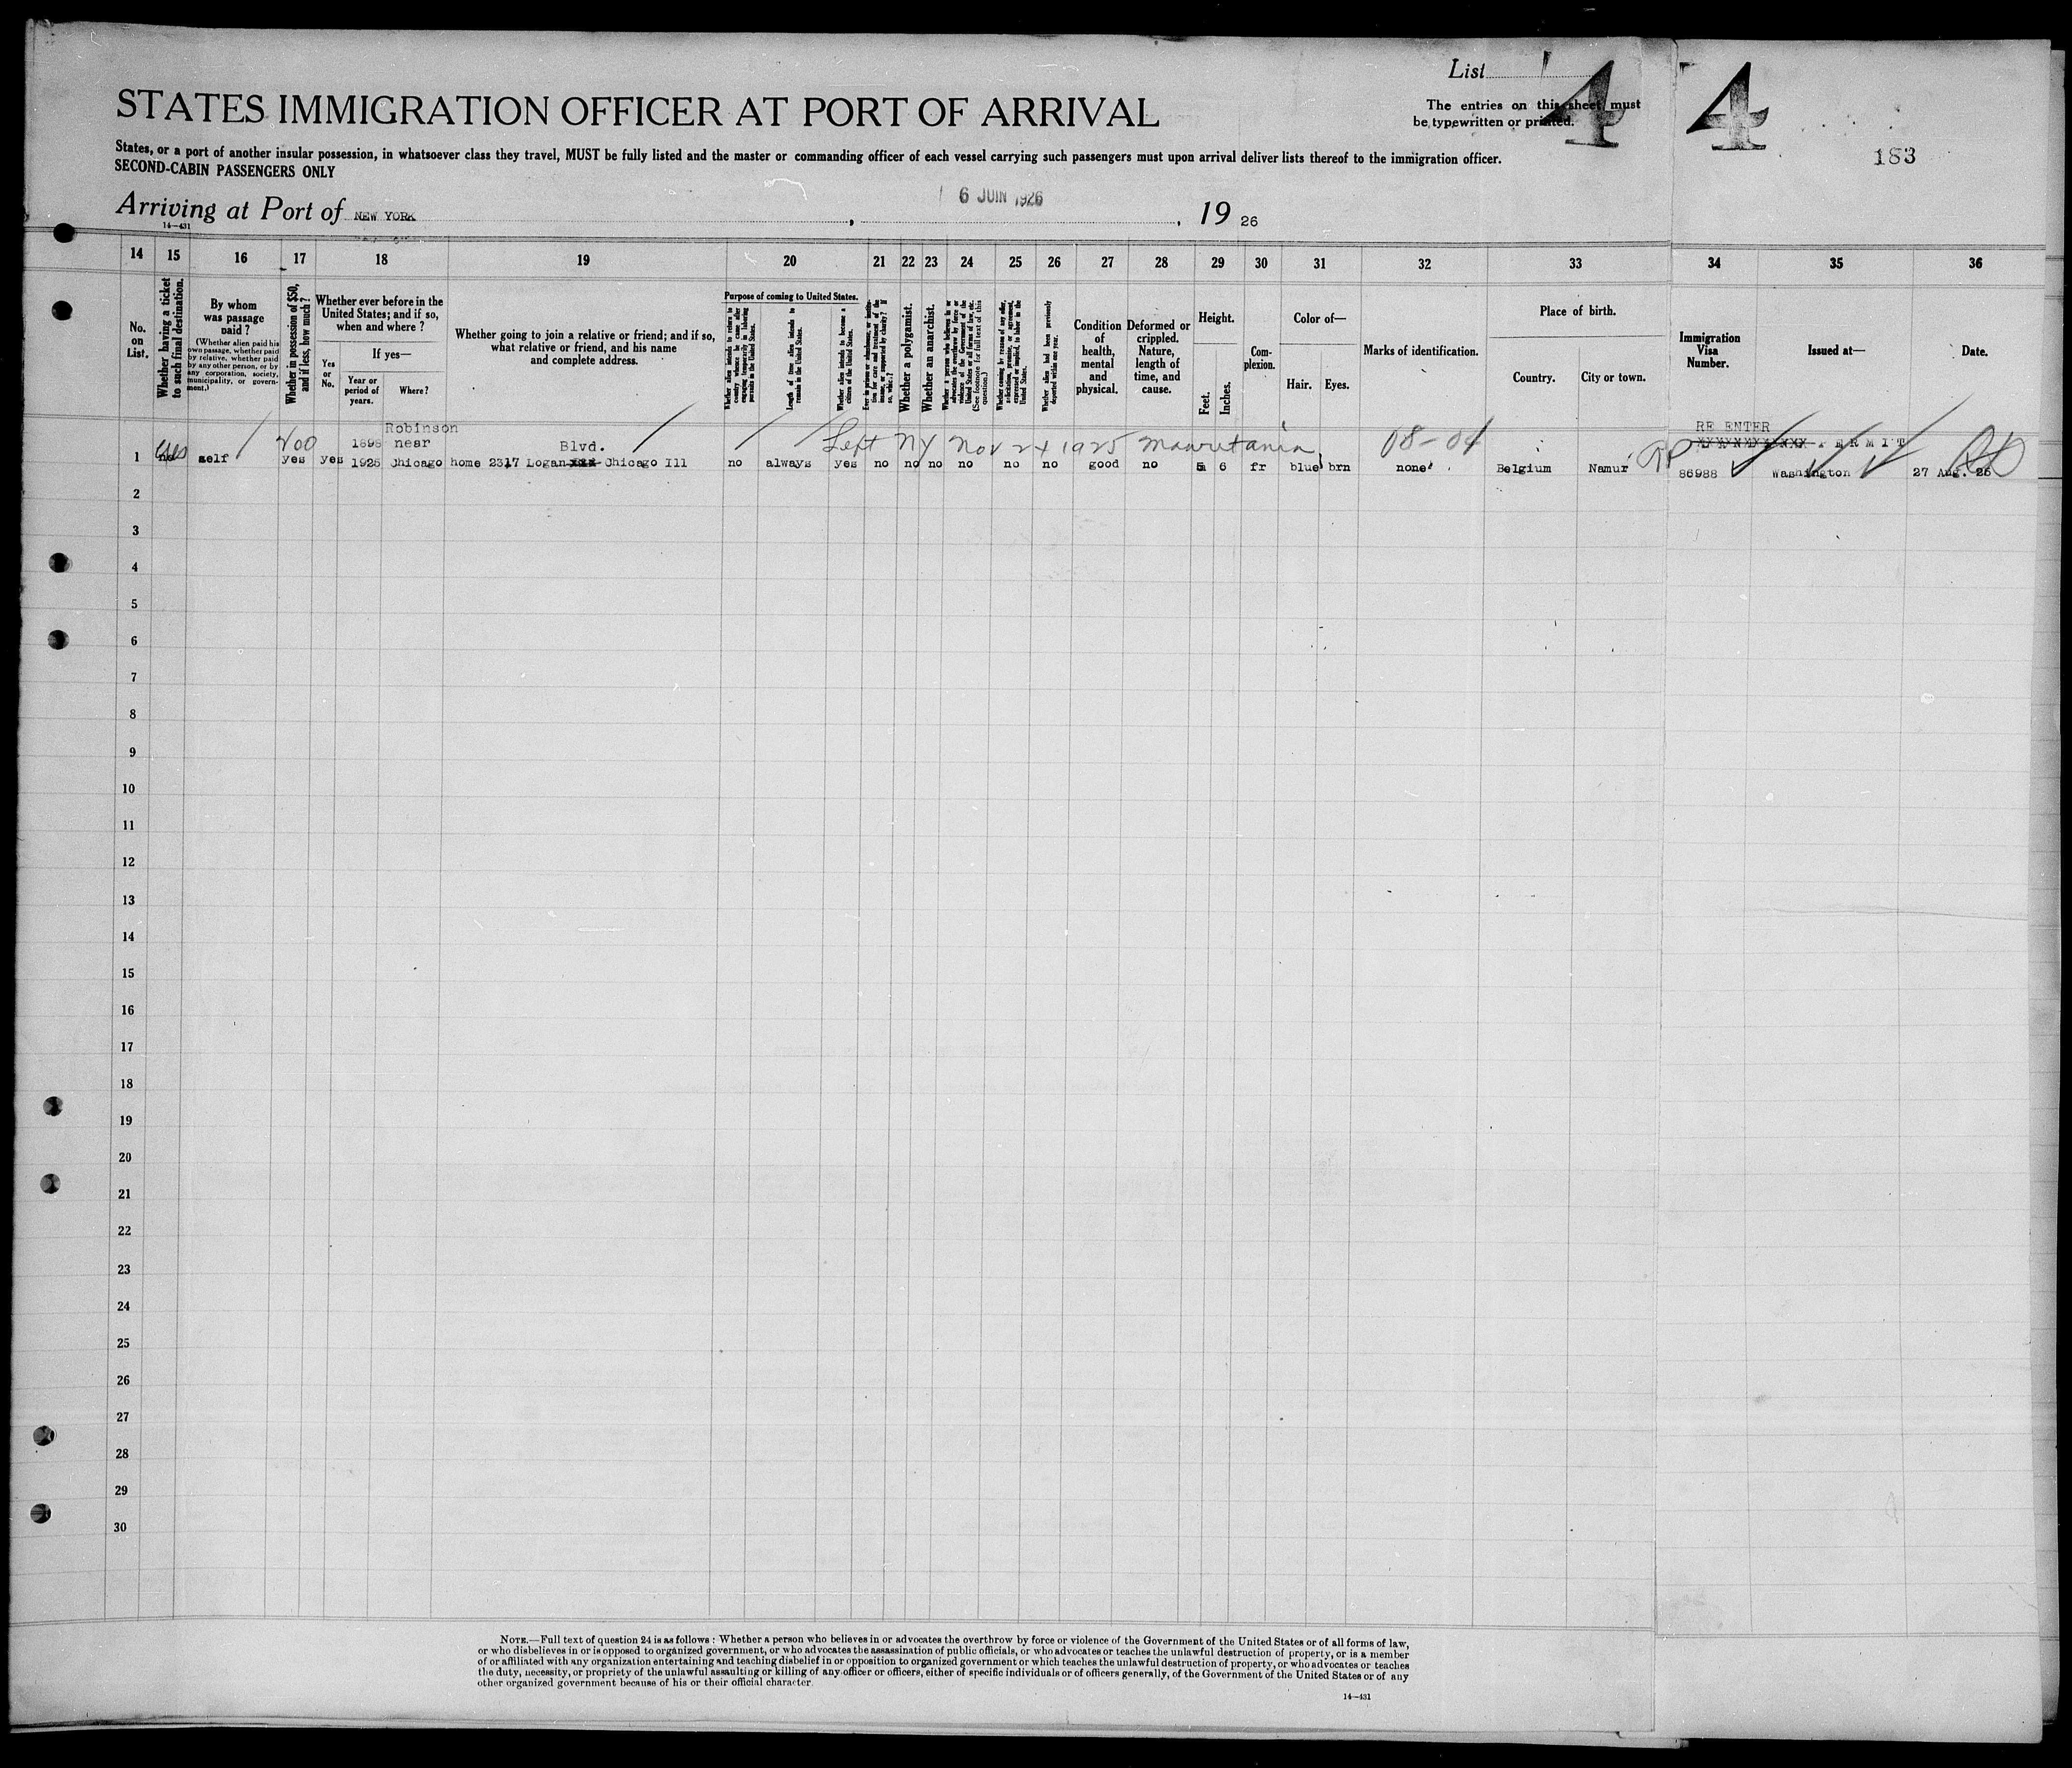 List
4
4
183
STATES IMMIGRATION OFFICER AT PORT OF ARRIVAL
The entries on this sheet must
be typewritten or printed.
States, or a port of another insular possession, in whatsoever class they travel, MUST be fully listed and the master or commanding officer of each vessel carrying such passengers must upon arrival deliver lists thereof to the immigration officer.
SECOND-CABIN PASSENGERS ONLY
Arriving at Port of NEW YORK, 6 JUIN 1926, 19 26
14—431
14 15 16 17 18 19 20 21 22 23 24 25 26 27 28 29 30 31 32 33 34 35 36
No. on List.
Whether having a ticket to such final destination.
By whom was passage paid?
(Whether alien paid his own passage, whether paid by relative, whether paid by any other person, or by any corporation, society, municipality, or government.)
Whether in possession of $50, and if less, how much?
Whether ever before in the United States; and if so, when and where?
Yes or No.
If yes—
Year or period of years.
Where?
Whether going to join a relative or friend; and if so, what relative or friend, and his name and complete address.
Purpose of coming to United States.
Whether alien intends to return to country whence he came after engaging temporarily in laboring pursuits in the United States.
Length of time alien intends to remain in the United States.
Whether alien intends to become a citizen of the United States.
Ever in prison or almshouse, or institution for care and treatment of the insane, or supported by charity? If so, which?
Whether a polygamist.
Whether an anarchist.
Whether a person who believes in or advocates the overthrow by force or violence of the Government of the United States or all forms of law, etc. (See footnote for full text of this question.)
Whether coming by reason of any offer, solicitation, promise, or agreement, expressed or implied, to labor in the United States.
Whether alien had been previously deported within one year.
Condition of health, mental and physical.
Deformed or crippled. Nature, length of time, and cause.
Height.
Feet.
Inches.
Complexion.
Color of—
Hair.
Eyes.
Marks of identification.
Place of birth.
Country.
City or town.
Immigration Visa Number.
Issued at—
Date.
Robinson RE ENTER
yes 200 1898 near Blvd. Left NY Nov 24 1925 Mauretania 08-04 PERMIT
1 no self yes yes 1925 Chicago home 2317 Logan Chicago Ill no always yes no no no no no no good no 5 6 fr blue brn none Belgium Namur RP 86988 Washington 27 Aug. 25
2
3
4
5
6
7
8
9
10
11
12
13
14
15
16
17
18
19
20
21
22
23
24
25
26
27
28
29
30
NOTE.—Full text of question 24 is as follows: Whether a person who believes in or advocates the overthrow by force or violence of the Government of the United States or of all forms of law,
or who disbelieves in or is opposed to organized government, or who advocates the assassination of public officials, or who advocates or teaches the unlawful destruction of property, or is a member
of or affiliated with any organization entertaining and teaching disbelief in or opposition to organized government or which teaches the unlawful destruction of property, or who advocates or teaches
the duty, necessity, or propriety of the unlawful assaulting or killing of any officer or officers, either of specific individuals or of officers generally, of the Government of the United States or of any
other organized government because of his or their official character.
14—431